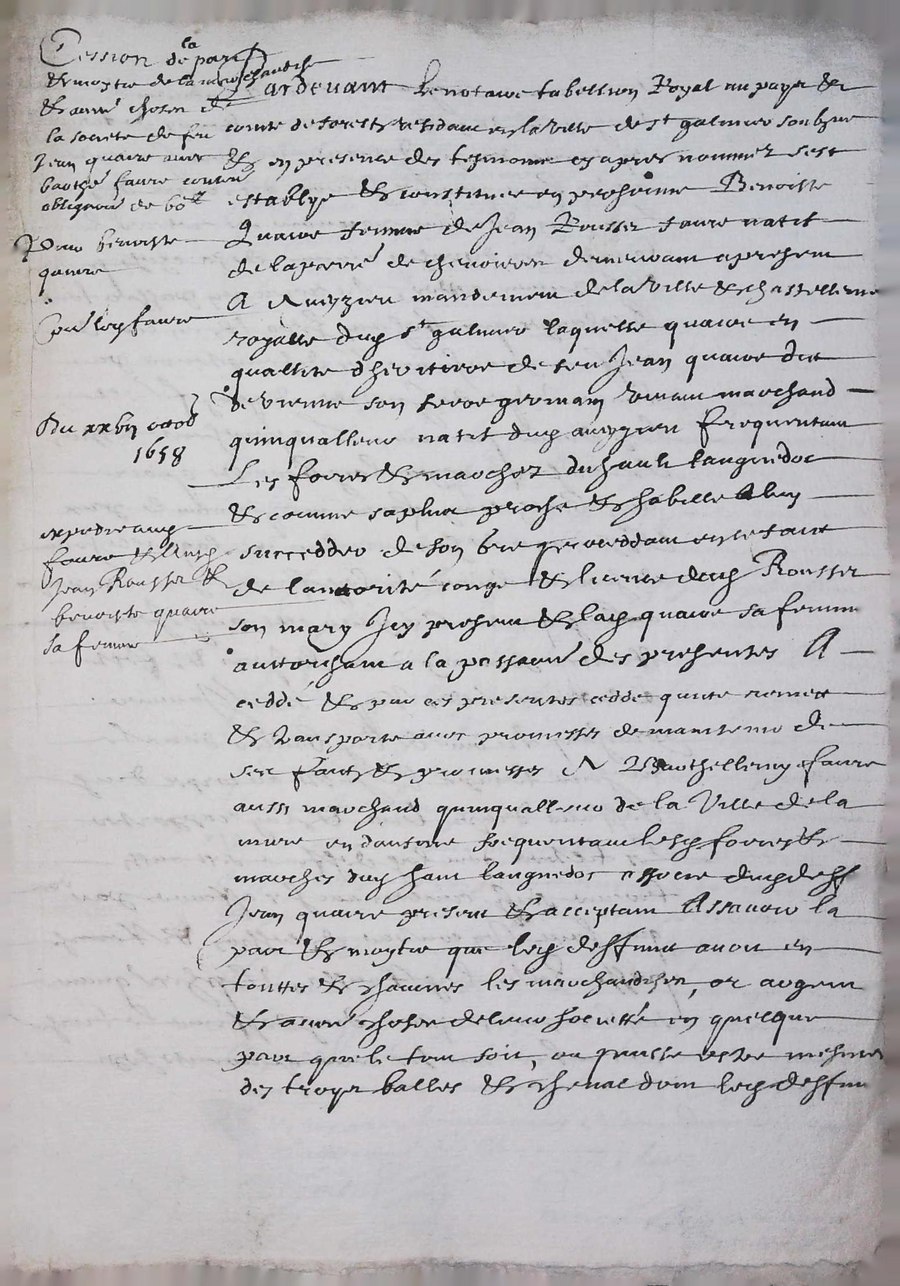 Cession de la part
& moytie de la marchandise
& autres choses de
la societe de feu
Jean quaire avec
barthey faure contenant
obligation de
Pour benoiste
quaire
led faure
Du xxvij
1658
expedie aud
faure & ausd
Jean Rousset &
benoiste quaire
sa femme
Pardevant le notaire tabellion Royal au pays &
comte de forestz residant en la ville de st galmier soubzne
& en presence des tesmoins cy apres nommez sest
establye & constituee en personne Benoiste
Quaire femme de Jean Rousset faure natif
de la parre de chevrieres demeurant a present
A Aveyzieu mandement de la ville & chastellenie
royalle dud st galmier laquelle quaire en
quallite dheritiere de feu Jean quaire dit
de vienne son frere germain vivant marchand
quinquallieur natif dud aveyzieu frequentant
Les foires & marchez du hault languedoc
& comme sa plus proche & habille a luy
succedder de son bre proceddant en ce fait
de lautorité conge & licence dud Rousset
son mary Icy present & lad quaire sa femme
authorisant a la passaon des presentes A
ceddé & par ces presentes cedde quite remet
& transporte avec promesses de maintenir de
ses faitz & promesses A Barthellemy faure
aussi marchand quinquallieur de la Ville de la
mure en dauphine frequentant lesd foires &
marches dud haut languedoc associe dud deff
Jean quaire present & acceptant Assavoir la
part & moytie que led deffunt avoit en
touttes & chacunes les marchandises, or argent
& autres choses de leur societté en quelque
part que le tout soit, ou puisse estre mesmes
des troys balles & cheval dont led deffun